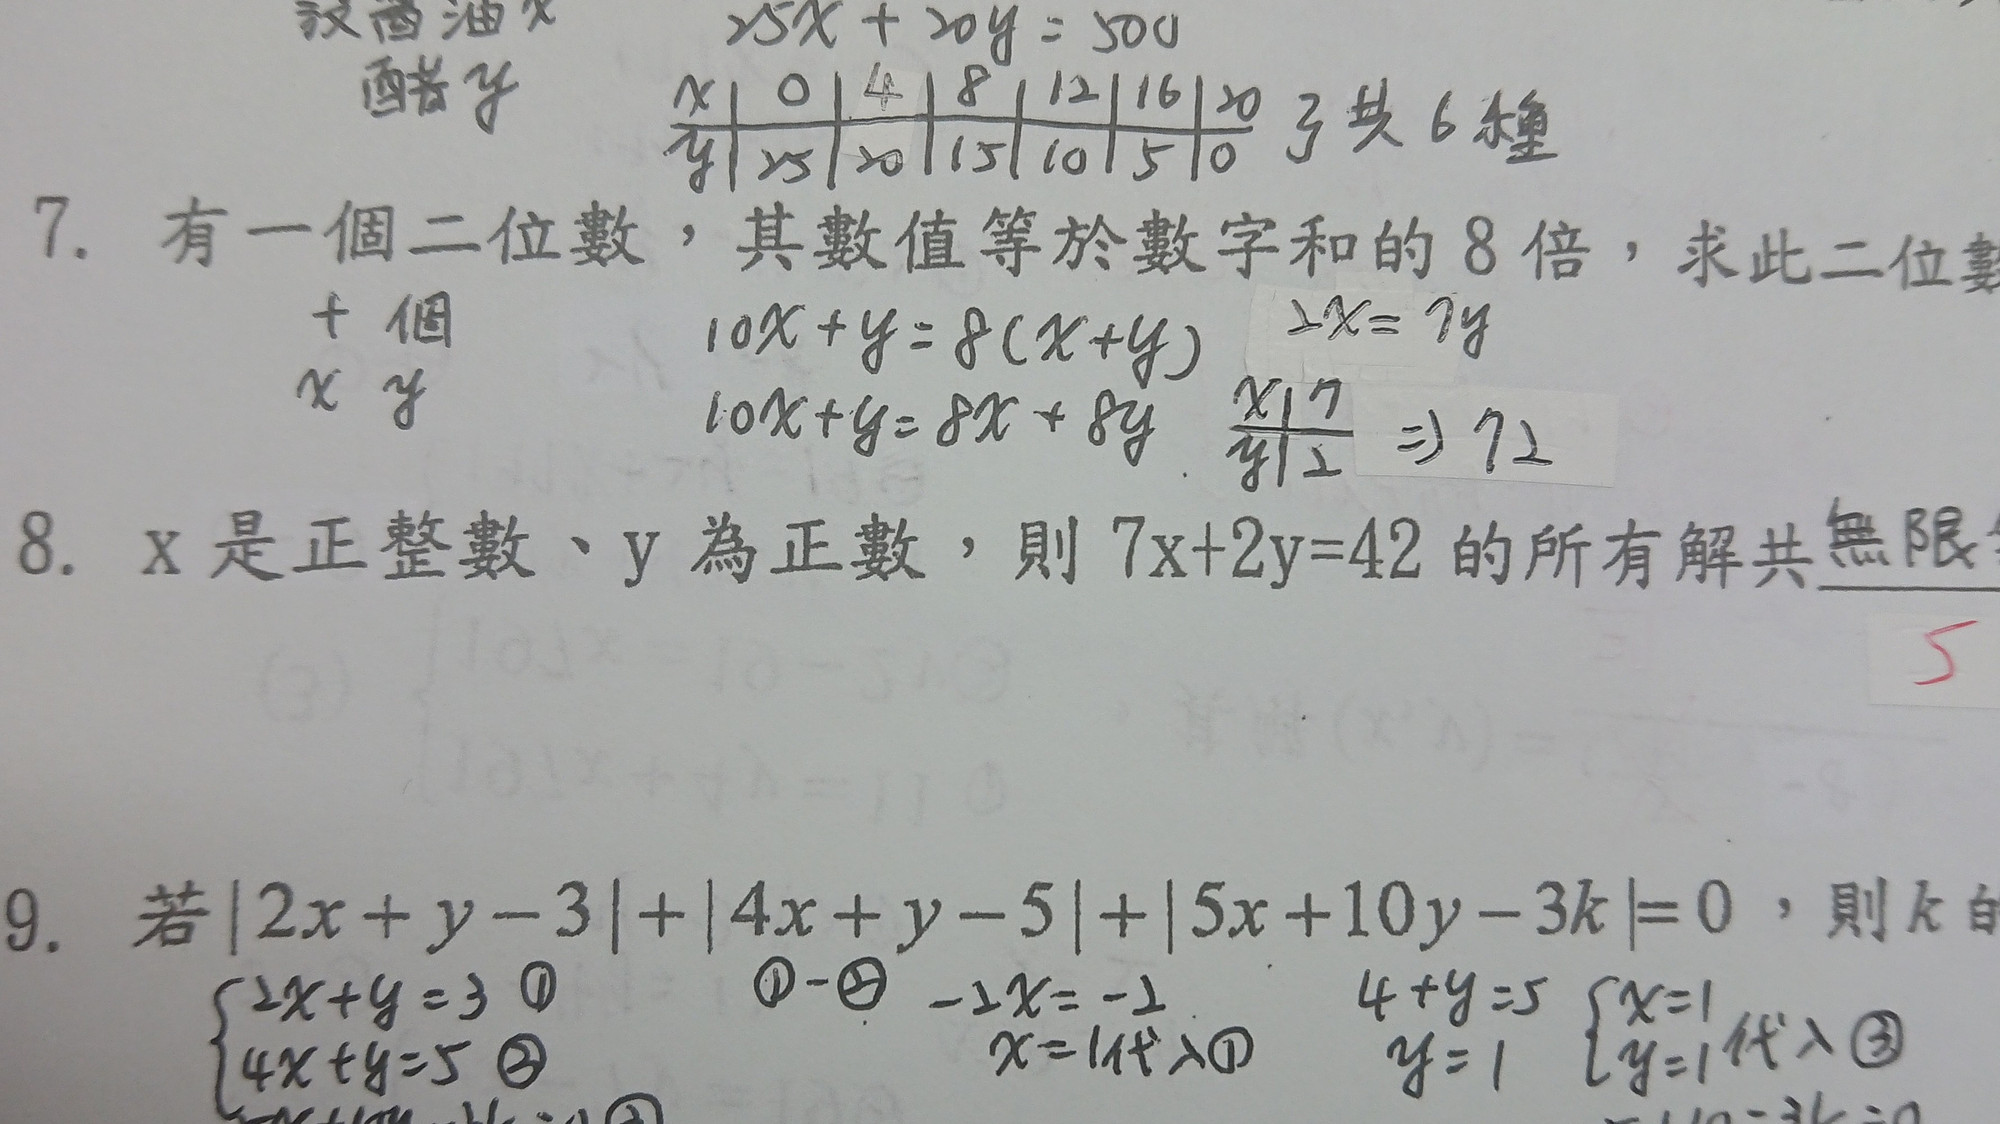 設醬油x 25x + 20y = 500
醋y
x 0 4 8 12 16 20
y 25 20 15 10 5 0 共6種
7. 有一個二位數，其數值等於數字和的 8 倍，求此二位數
十 個 10x + y = 8(x+y) 2x = 7y
x y 10x + y = 8x + 8y x 7
y 2 => 72
8. x 是正整數、y 為正數，則 7x+2y=42 的所有解共無限
5
9. 若|2x + y − 3| + |4x + y − 5| + |5x + 10y − 3k| = 0，則 k 的
2x + y = 3 ① ① - ② -2x = -2 4 + y = 5 x = 1
4x + y = 5 ② x = 1代入① y = 1 y = 1 代入③